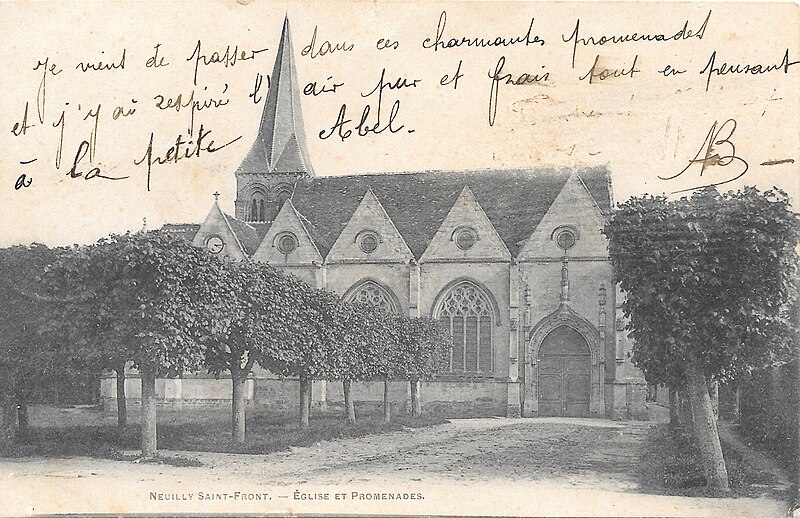 Je viens de passer dans ces charmantes promenades
et j'y ai respiré l'air pur et frais tout en pensant
à la petite Abel.
AB
NEUILLY SAINT-FRONT. — ÉGLISE ET PROMENADES.